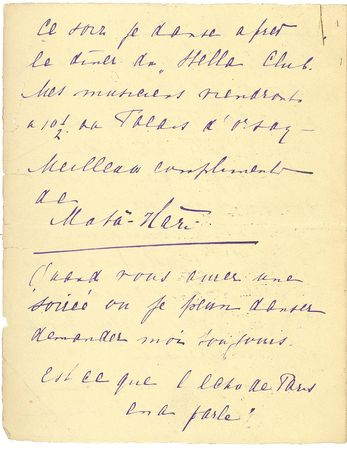 Ce soir je danse apres
le diner du "Stella Club.
Mes musiciens viendront
a 10½ au Palais d'Orsay—
Meilleau compliments
de
Mata-Hari
Quand vous aurez une
soirée ou je peux danser
demander moi toujours.
Est ce que l'écho de Paris
en a parlé?